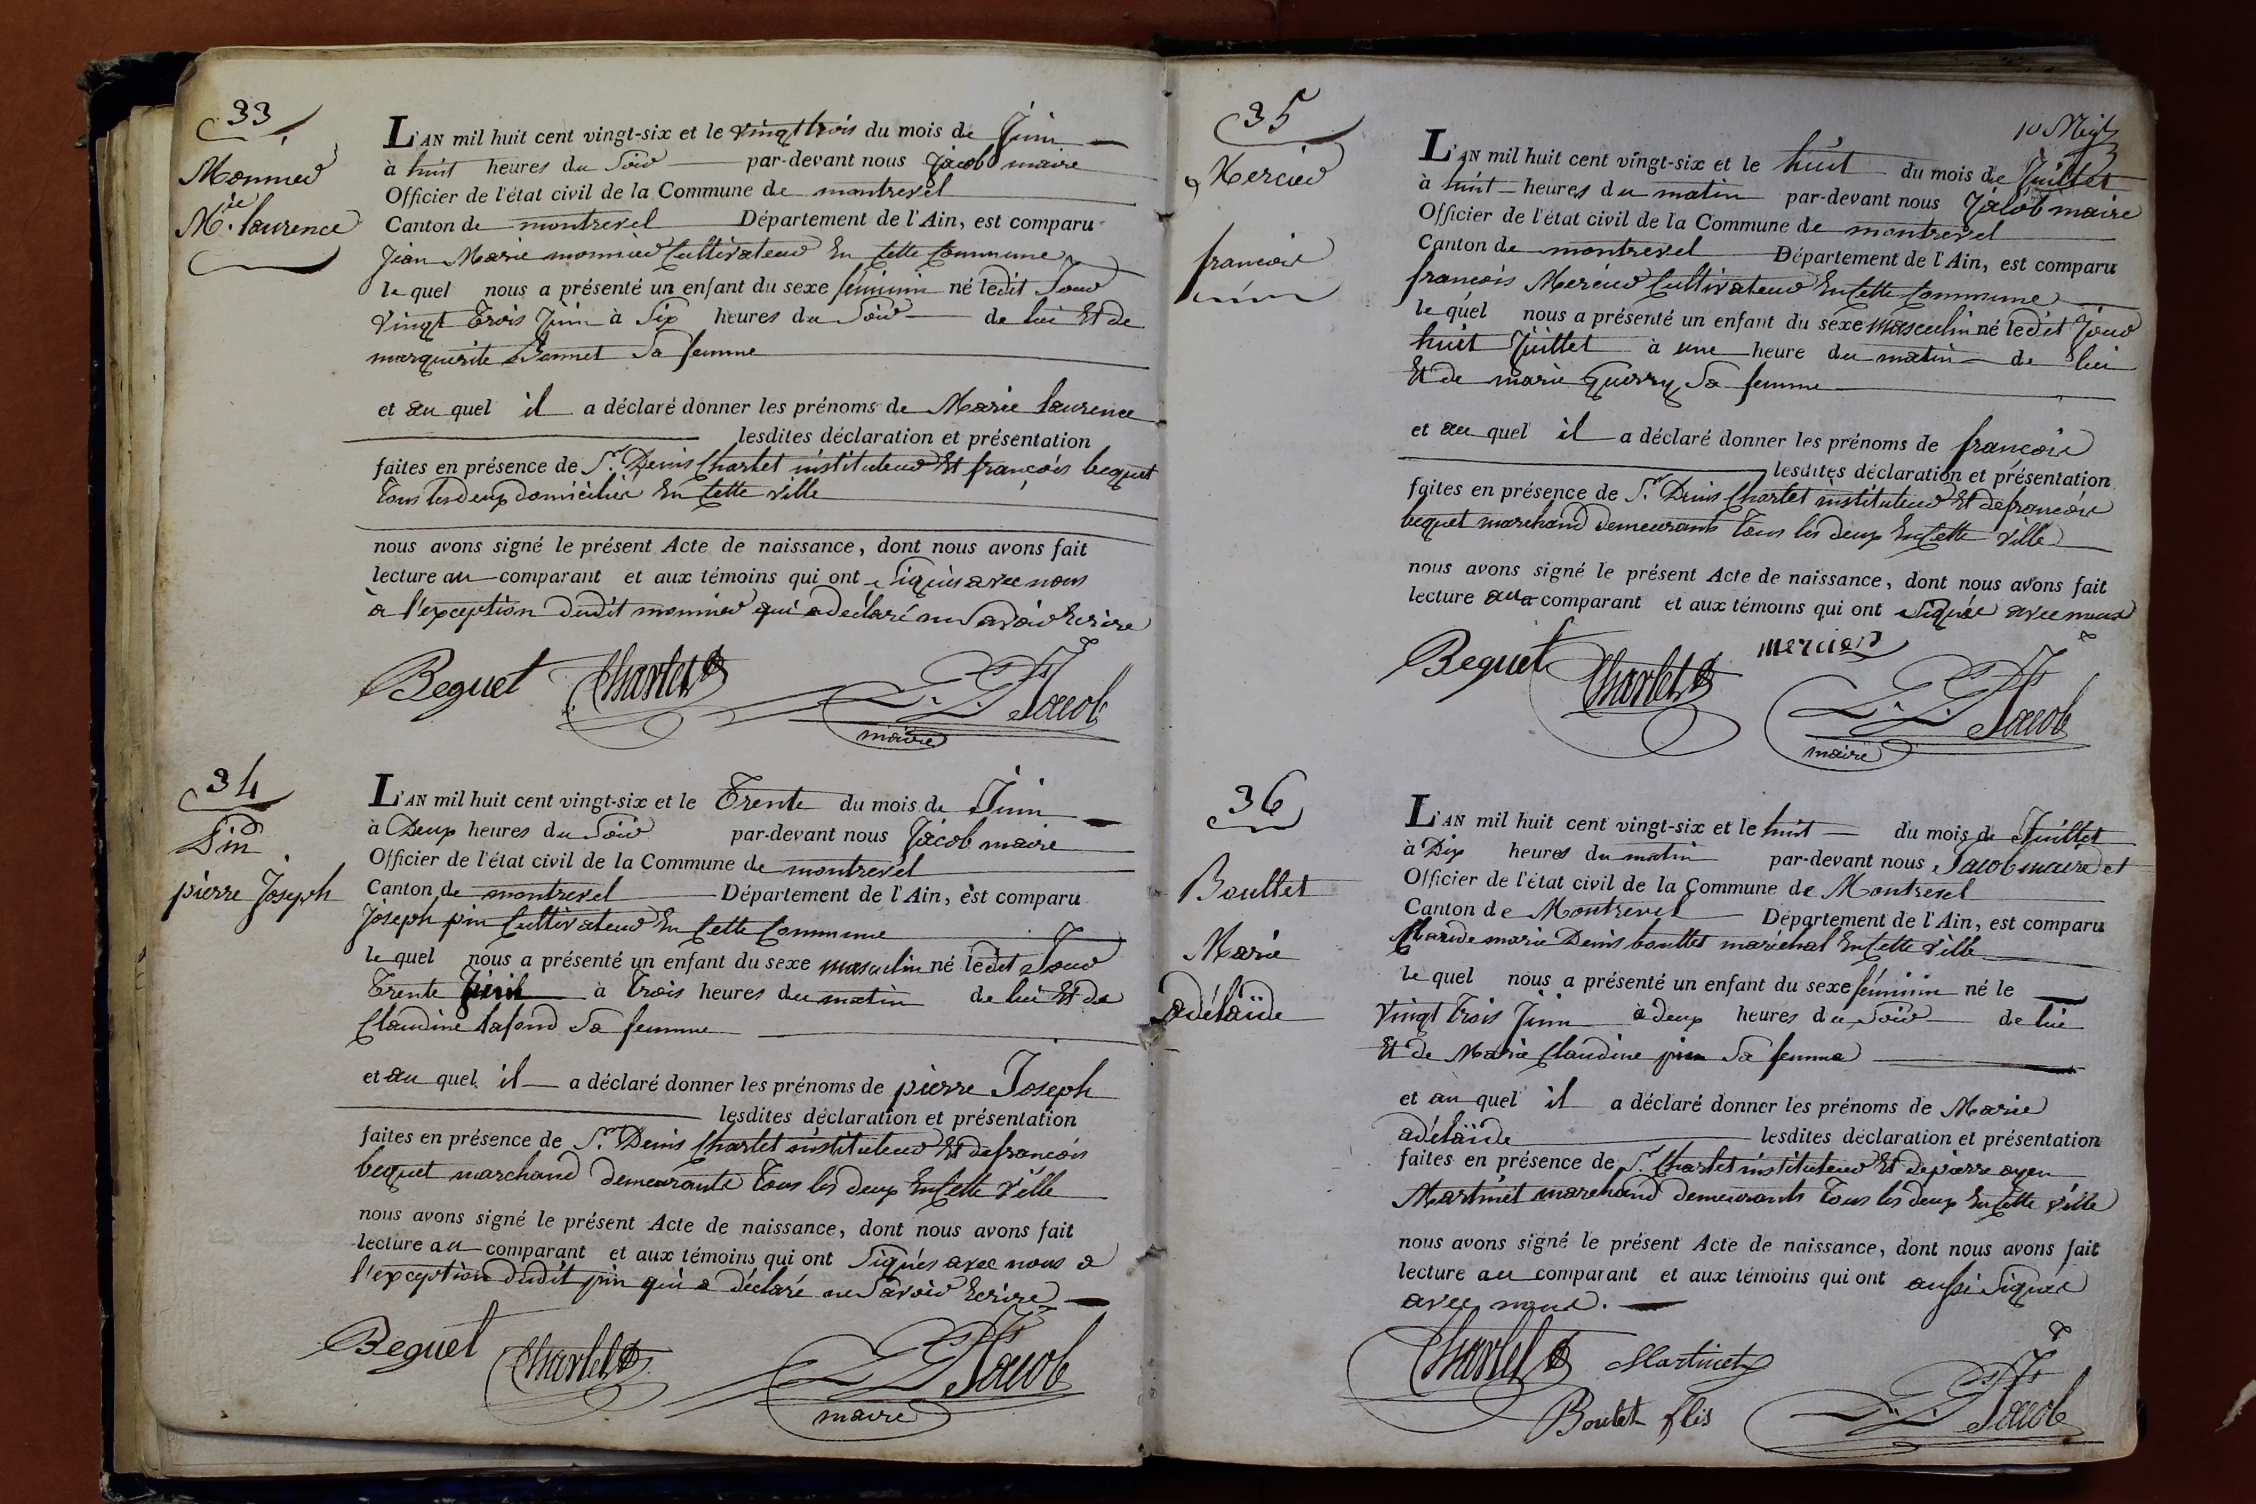 33
Monnier
M.ie laurence
L'AN mil huit cent vingt-six et le vingt trois du mois de Juin
à huit heures du Soir par-devant nous Jacob maire
Officier de l'état civil de la Commune de montrevel
Canton de montrevel Département de l'Ain, est comparu
Jean Marie monnier Cultivateur En Cette Commune
le quel nous a présenté un enfant du sexe féminin né ledit Jour
vingt Trois Juin à Six heures du Soir de lui Et de
marguerite Bonnet Sa femme
et au quel il a déclaré donner les prénoms de Marie laurence
lesdites déclaration et présentation
faites en présence de S.r Denis Charlet instituteur Et françois bequet
Tous les deux domicilié En Cette ville
nous avons signé le présent Acte de naissance, dont nous avons fait
lecture au comparant et aux témoins qui ont Signés avec nous
à l'exception dudit monnier qui a déclaré ne Savoir Ecrire
Beguet Charlet D Jacob
maire
34
Pin
pierre Joseph
L'AN mil huit cent vingt-six et le Trente du mois de Juin
à Deux heures du Soir par-devant nous Jacob maire
Officier de l'état civil de la Commune de montrevel
Canton de montrevel Département de l'Ain, est comparu
Joseph pin Cultivateur En Cette Commune
le quel nous a présenté un enfant du sexe masculin né ledit Jour
Trente Juin à Trois heures du matin de lui Et de
Claudine lafond Sa femme
et au quel il a déclaré donner les prénoms de pierre Joseph
lesdites déclaration et présentation
faites en présence de S.r Denis Charlet instituteur Et de françois
bequet marchand demeurants Tous les deux En Cette Ville
nous avons signé le présent Acte de naissance, dont nous avons fait
lecture au comparant et aux témoins qui ont Signés avec nous a
l'exception dudit pin qui a déclaré ne Savoir Ecrire
Beguet Charlet D Jacob
maire
35
Mercier
françois
L'AN mil huit cent vingt-six et le huit du mois de Juillet
à huit heures du matin par-devant nous Jacob maire
Officier de l'état civil de la Commune de montrevel
Canton de montrevel Département de l'Ain, est comparu
françois Mercier Cultivateur En Cette Commune
le quel nous a présenté un enfant du sexe masculin né ledit Jour
huit Juillet à une heure du matin de lui
Et de marie Guerry Sa femme
et au quel il a déclaré donner les prénoms de françois
lesdites déclaration et présentation
faites en présence de S.r Denis Charlet instituteur Et de françois
bequet marchand demeurants Tous les deux En Cette Ville
nous avons signé le présent Acte de naissance, dont nous avons fait
lecture au comparant et aux témoins qui ont Signés avec nous
mercier
Beguet Charlet D Jacob
maire
36
Boullet
Marie
adélaïde
L'AN mil huit cent vingt-six et le huit du mois de Juillet
à Dix heures du matin par-devant nous Jacob maire et
Officier de l'état civil de la Commune de Montrevel
Canton de Montrevel Département de l'Ain, est comparu
marie Denis boullet maréchal En Cette Ville
le quel nous a présenté un enfant du sexe féminin né le
vingt Trois Juin à deux heures du Soir de lui
Et de Marie Claudine pin Sa femme
et au quel il a déclaré donner les prénoms de Marie
adélaïde lesdites déclaration et présentation
faites en présence de S.r Charlet instituteur Et de pierre
Martinet marchand demeurants Tous les deux En Cette Ville
nous avons signé le présent Acte de naissance, dont nous avons fait
lecture au comparant et aux témoins qui ont aussi Signés
avec nous.
Charlet D Martinet
Boulet fils Jacob